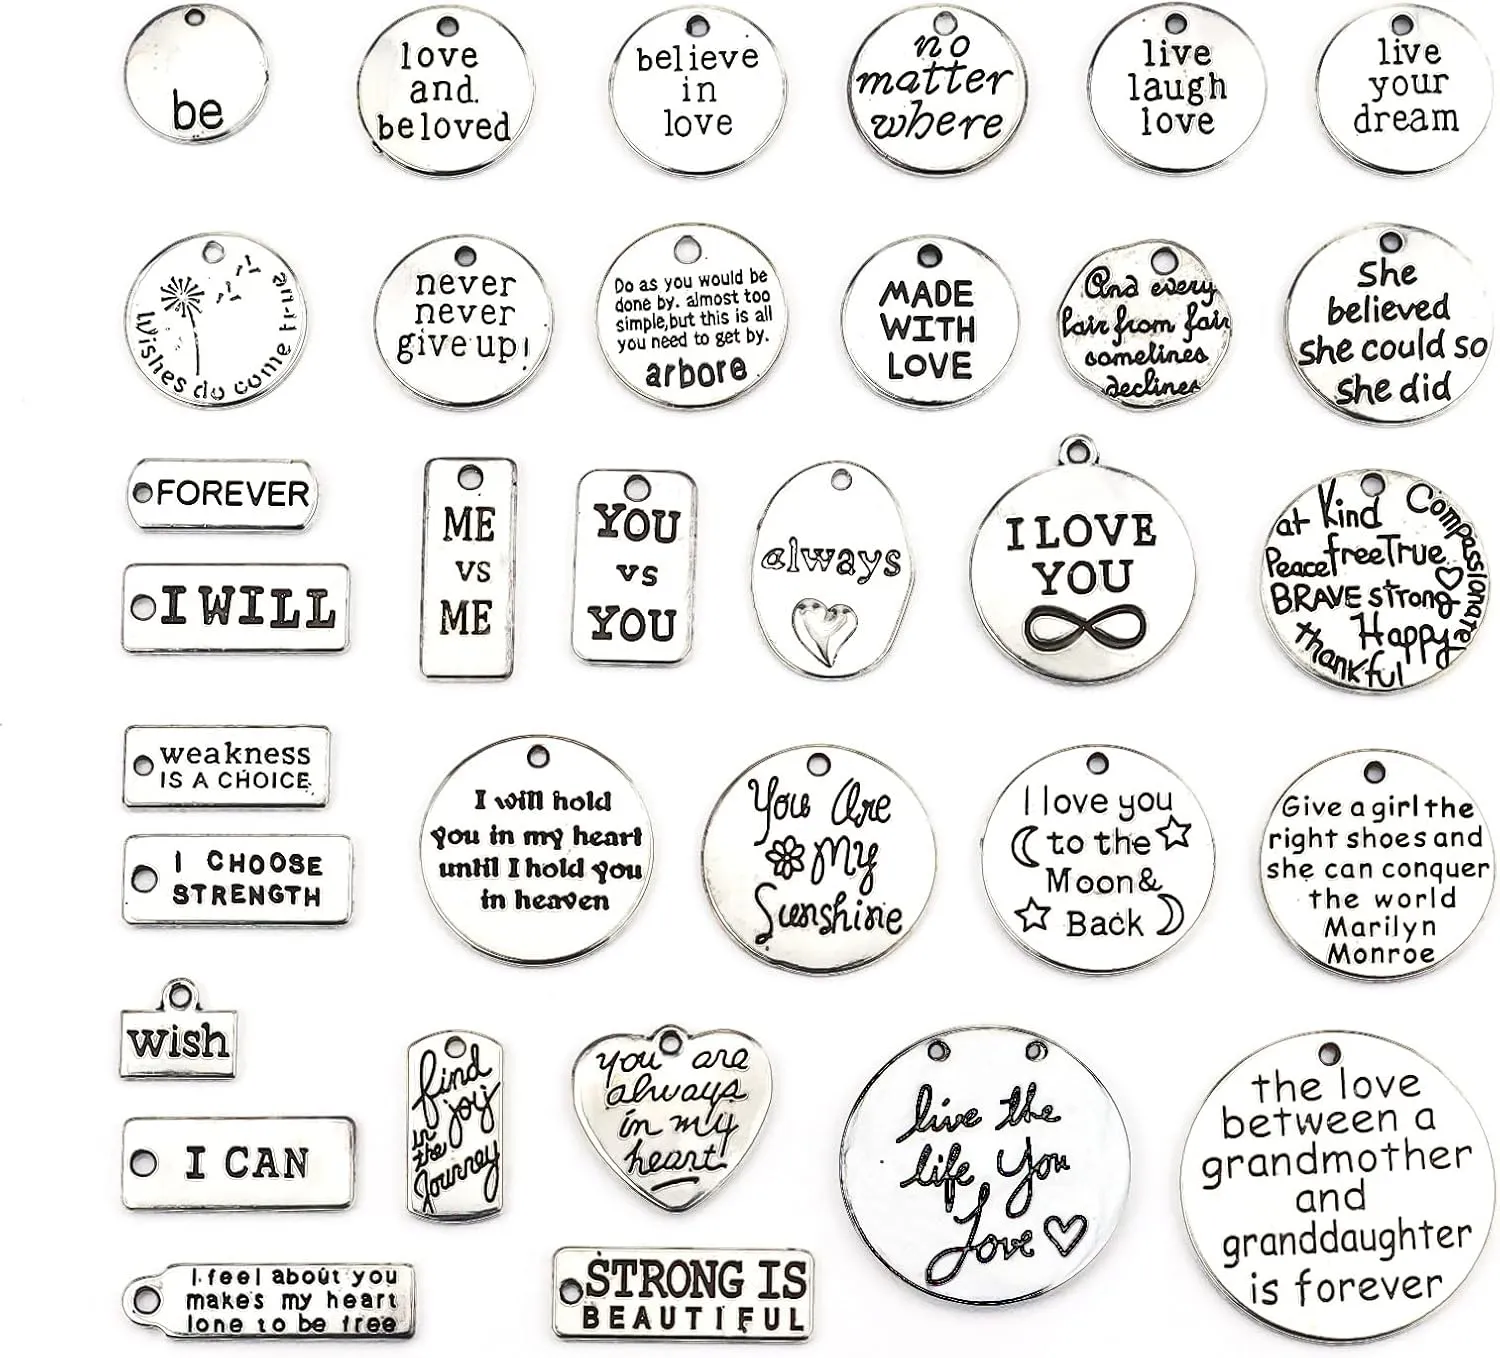 be
love
and.
beloved
believe
in
love
no
matter
where
live
laugh
love
live
your
dream
Wishes do come true
never
never
give up!
Do as you would be
done by. almost too
simple,but this is all
you need to get by.
arbore
MADE
WITH
LOVE
And every
fair from fair
somelines
declines
She
believed
she could so
she did
FOREVER
I WILL
ME
vs
ME
YOU
vs
YOU
always
I LOVE
YOU
at Kind Compassionate
Peace free True
BRAVE strong
Happy
thankful
weakness
IS A CHOICE
I CHOOSE
STRENGTH
I will hold
you in my heart
until I hold you
in heaven
You Are
My
Sunshine
I love you
to the
Moon&
Back
Give a girl the
right shoes and
she can conquer
the world
Marilyn
Monroe
wish
I CAN
find
joy
in
the
Journey
you are
always
in my
heart
live the
life you
Love
the love
between a
grandmother
and
granddaughter
is forever
I feel about you
makes my heart
lone to be free
STRONG IS
BEAUTIFUL